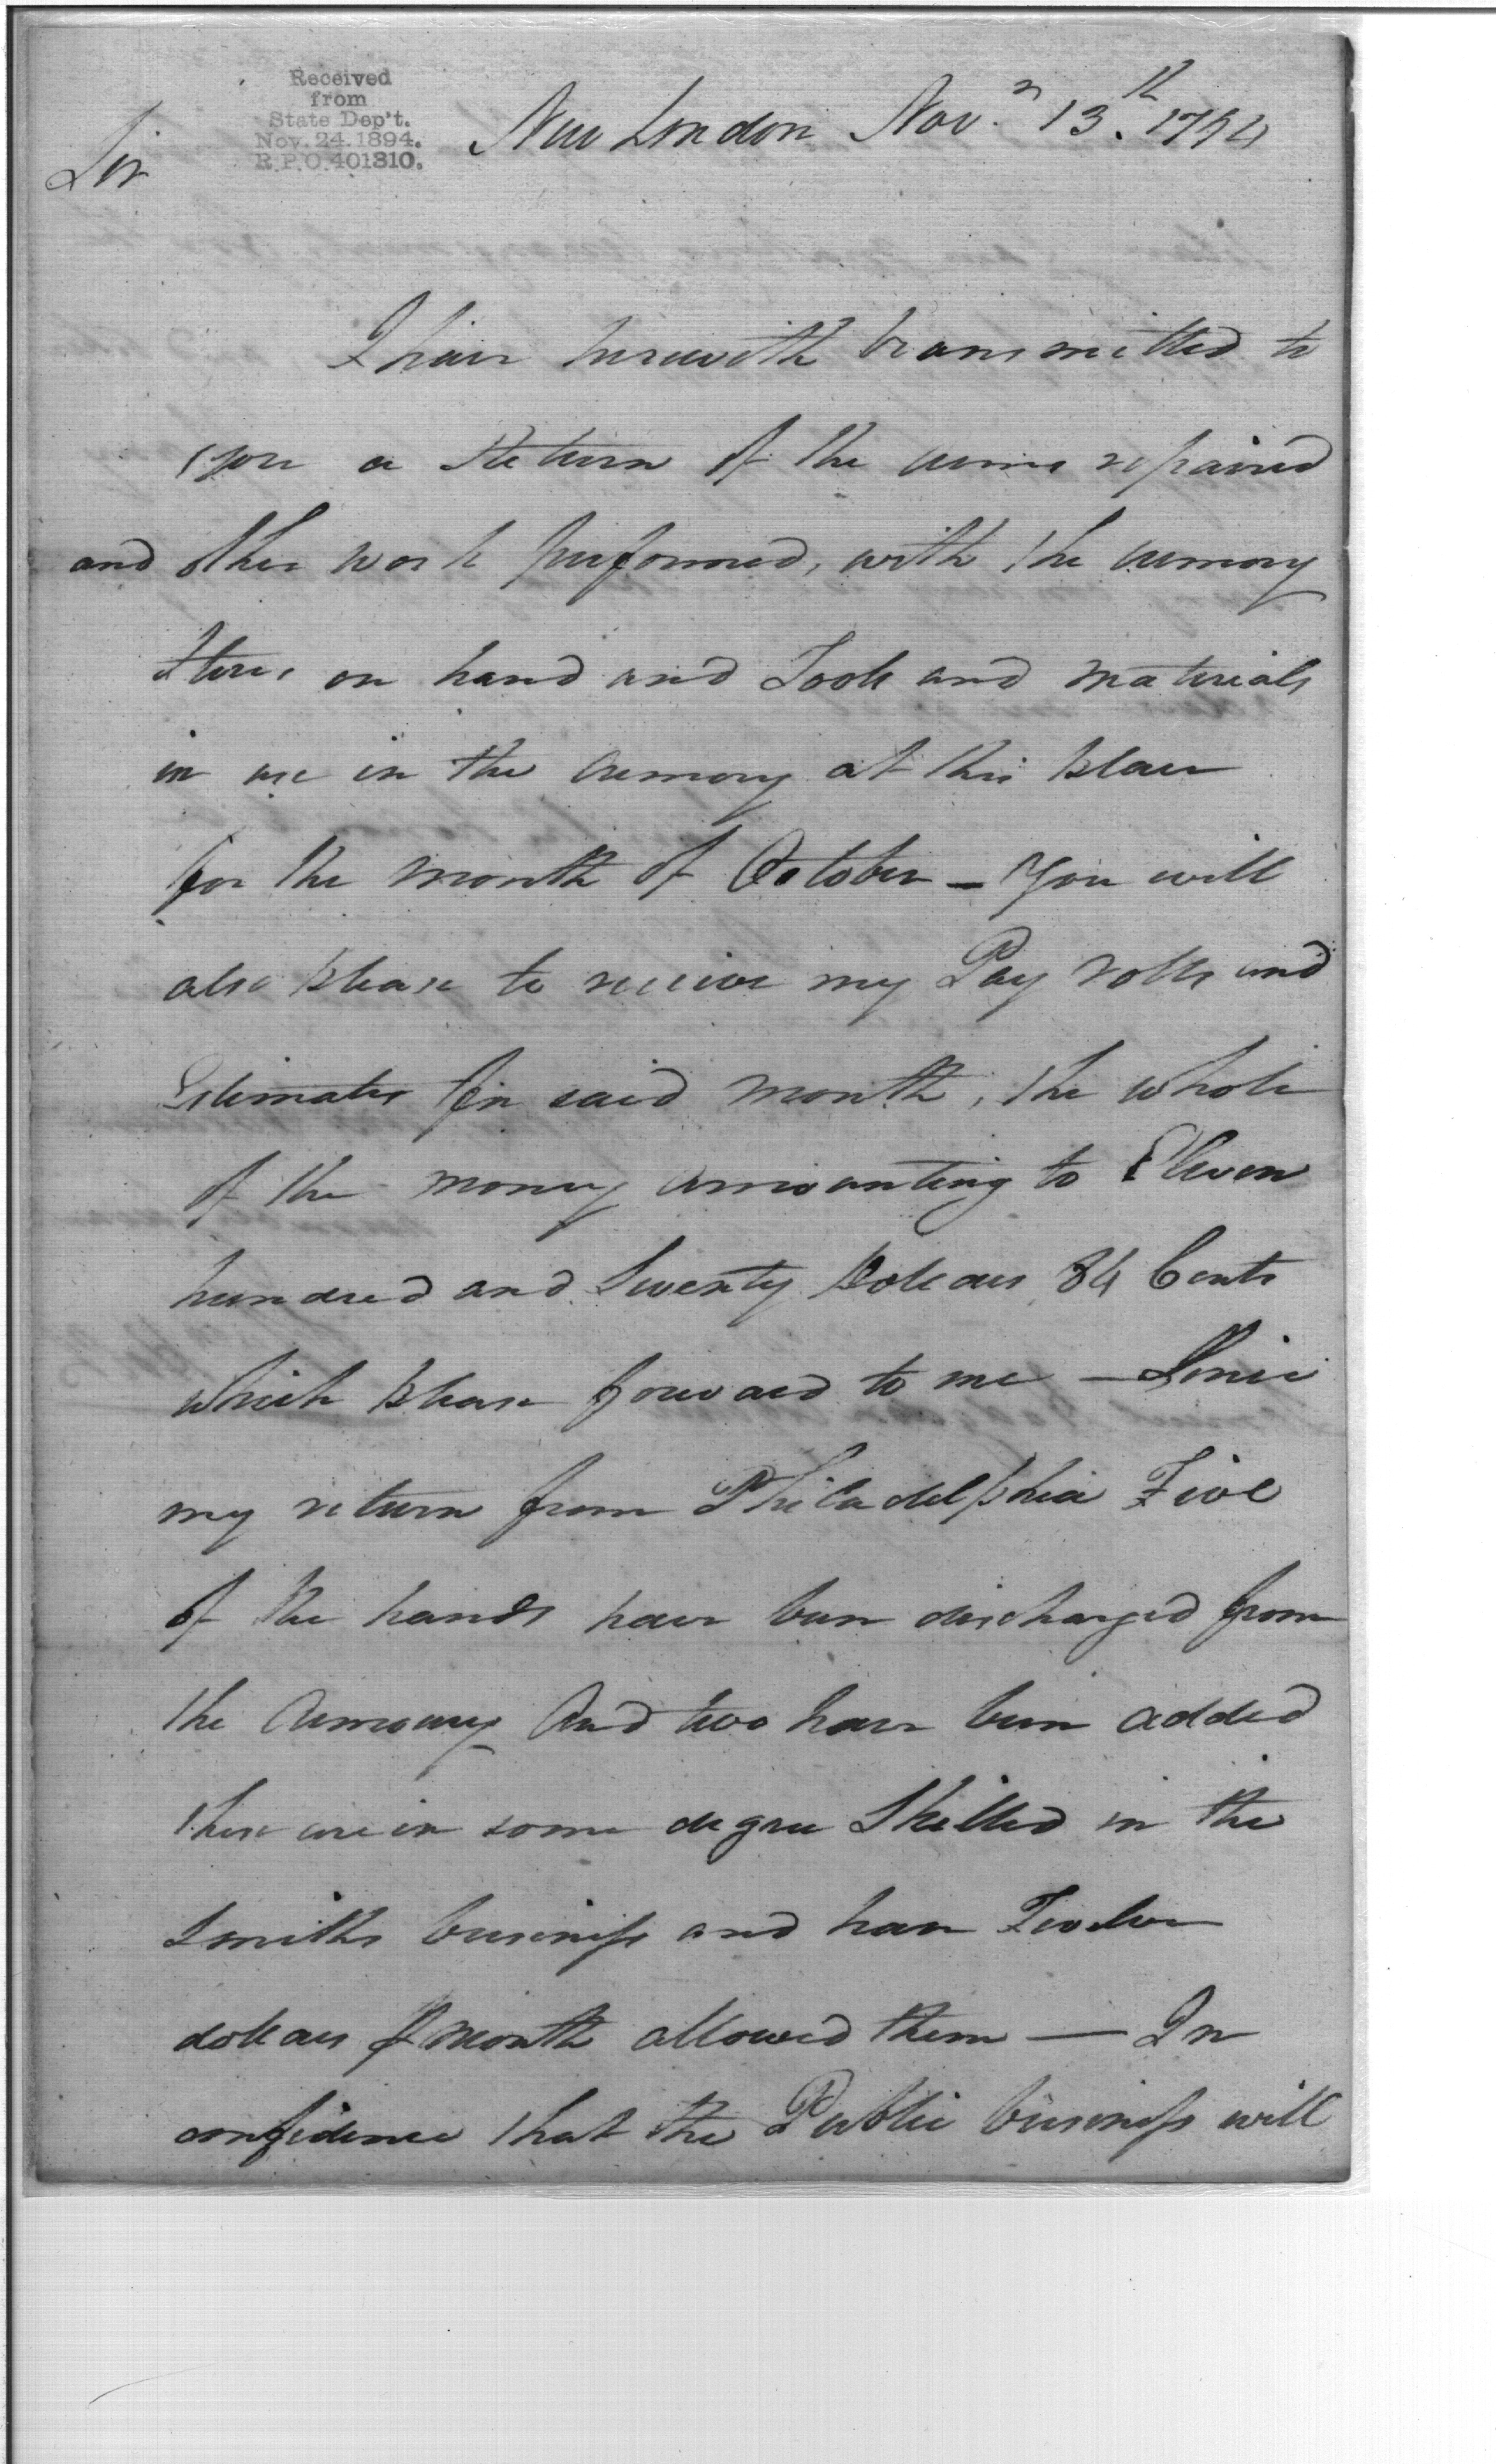 Received
from
State Dep't.
Nov. 24. 1894.
R.P.O. 401310.
New London Nov.r 13.th 1794
Sir
I have herewith transmitted to
you a Return of the arms repaired
and other work performed, with the armory
Stores on hand and Tools and materials
in use in the armory at this place
for the month of October – You will
also please to receive my Pay rolls and
Estimates for said month, the whole
of the money amounting to Eleven
hundred and Twenty Dollars 84 Cents
which please forward to me – Since
my return from Philadelphia Five
of the hands have been discharged from
the Armoury And two have been added
these are in some degree Skilled in the
Smiths business and have Twelve
dollars ⅌ month allowed them — In
confidence that the Public business will